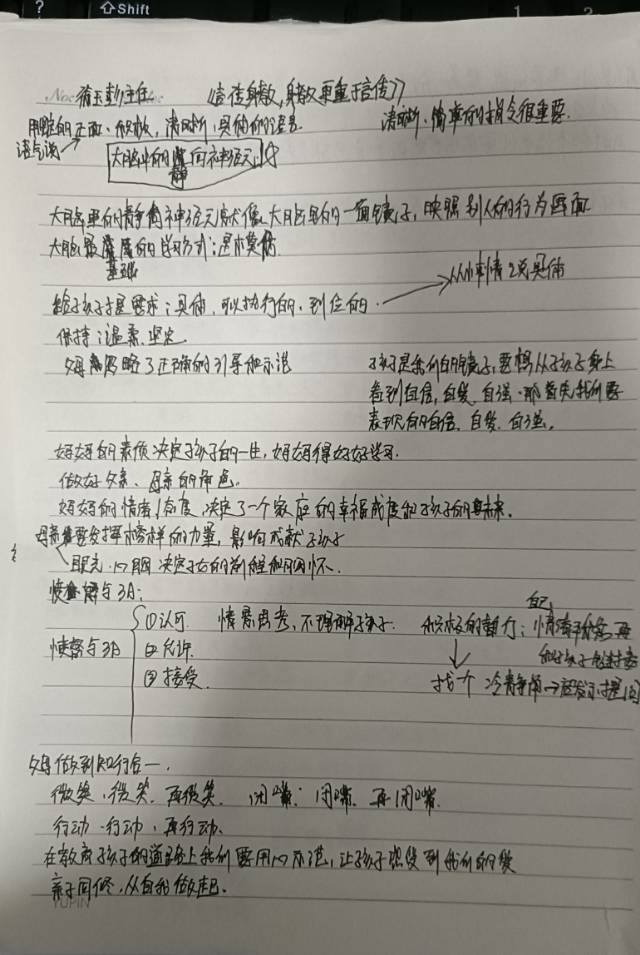 ⇧Shift
言传身教,身教更重于言传》
用的正面、积极,清晰,具体的语言
清晰、简单的指令很重要.
语气
大脑中的镜向神经元
大脑里的神经元就像大脑里的一面镜子,映照别人的行为画面
大脑最基础的学习方式:是模仿
给孩子提要求:具体,可以执行的,到位的.
从小事情 说具体
保持:温柔.坚定.
父母忽略了正确的引导和示范
孩子是我们的镜子,要想从孩子身上
看到自信,自爱,自强.那首先我们要
表现的自信、自爱,自强。
妈妈的素质决定孩子的一生,妈妈得好好学习.
做好父亲、母亲的角色.
妈妈的情绪/态度,决定了一个家庭的幸福感和孩子的未来.
母亲要发挥榜样的力量,影响成就孩子
眼光.心胸 决定孩子的和胸怀.
情绪与3A:
情绪与3A
①认可
②允许.
③接受.
不理解孩子.
积极的暂行:
找一个 冷静角
父母做到知行合一.
微笑.微笑.再微笑. 闭嘴:闭嘴.再闭嘴.
行动.行动.再行动.
在教育孩子的道路上我们要用心示范,让孩子感受到我们的爱
亲子同修,从自我做起.
YUPIN